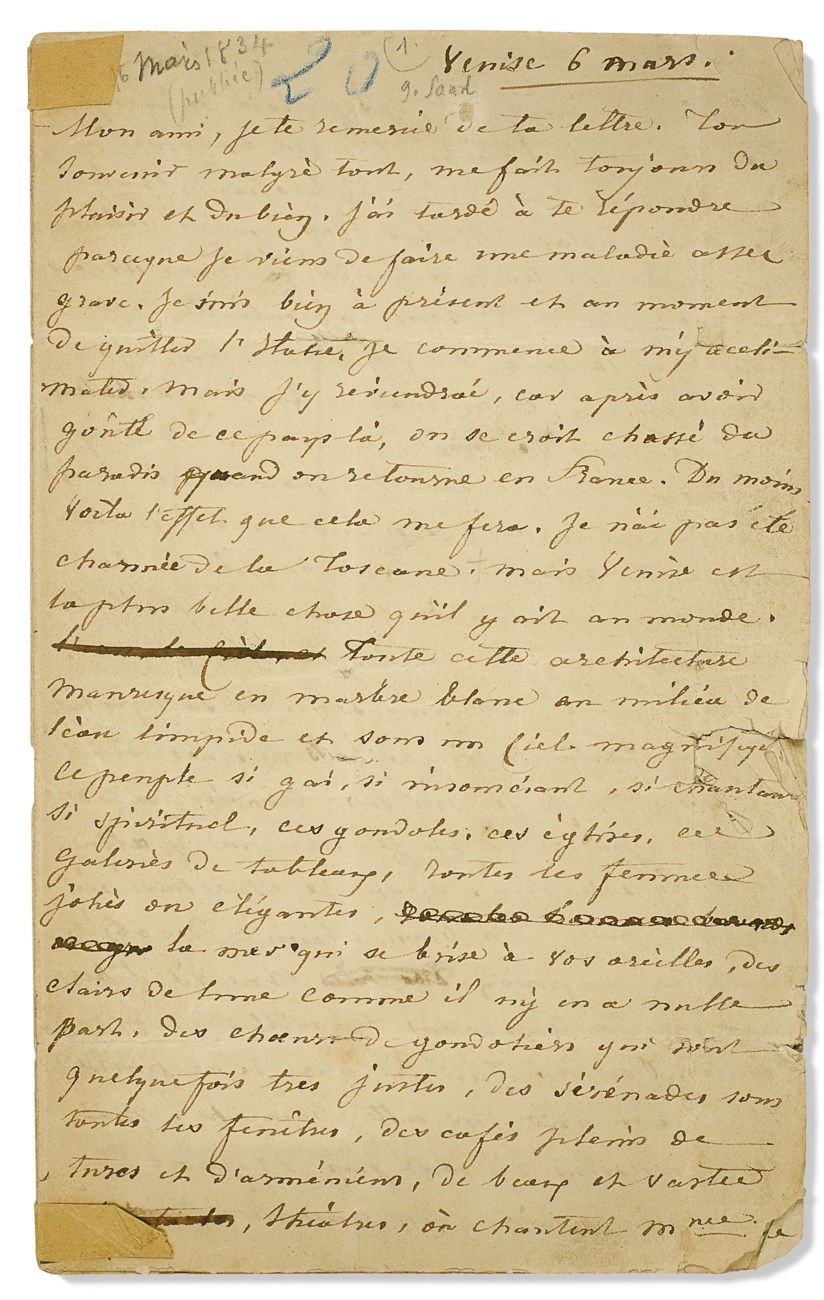 6 Mars 1834
(publiée)
20
1.
G. Sand
Venise 6 mars.
Mon ami, je te remercie de ta lettre. Ton
souvenir malgré tout, me fait toujours du
plaisir et du bien. j'ai tardé à te répondre
parceque je viens de faire une maladie assez
grave. Je suis bien à présent et au moment
de quitter l'Italie. Je commence à m'y accli-
mater. Mais j'y reviendrai, car après avoir
goûté de ce pays là, on se croit chassé du
paradis quand on retourne en France. Du moins
voila l'effet que cela me fera. Je n'ai pas été
charmée de la Toscane. mais Venise est
la plus belle chose qu'il y ait au monde.
Toute cette architecture
Mauresque en marbre blanc au milieu de
l'eau limpide et sous un Ciel magnifique
Ce peuple si gai, si insouciant, si chantant
si spirituel, ces gondoles. ces églises, ces
Galeries de tableaux, toutes les femmes
jolies ou élégantes,
la mer qui se brise à vos oreilles, des
clairs de lune comme il n'y en a nulle
part, des choeurs de gondoliers qui sont
quelquefois très justes, des sérénades sous
toutes les fenêtres, des cafés pleins de
turcs et d'arméniens, de beaux et vastes
, théâtres, où chantent Mme